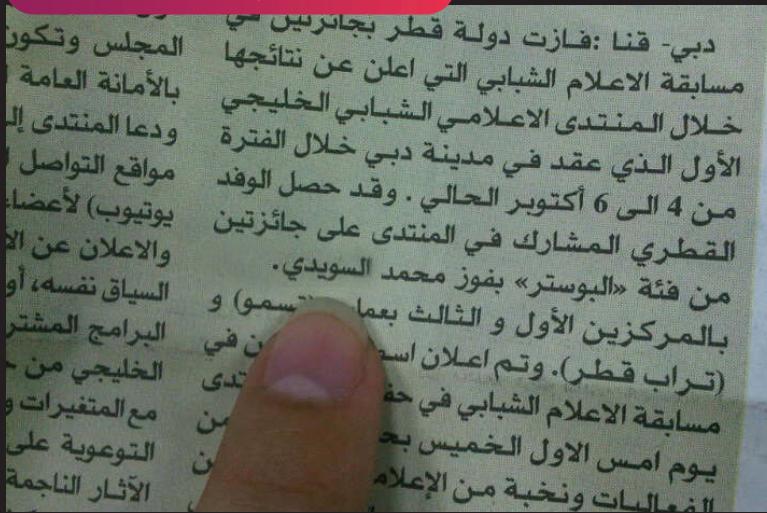 دبي- قنا :فازت دولة قطر بجائزتين في
مسابقة الاعلام الشبابي التي اعلن عن نتائجها
خلال المنتدى الاعلامي الشبابي الخليجي
الأول الذي عقد في مدينة دبي خلال الفترة
من 4 الى 6 أكتوبر الحالي . وقد حصل الوفد
القطري المشارك في المنتدى على جائزتين
من فئة «البوستر» بفوز محمد السويدي.
بالمركزين الأول و الثالث و
(تراب قطر). وتم اعلان في
مسابقة الاعلام الشبابي في
يوم امس الاول الخميس من
الفعاليات ونخبة من
المجلس وتكون
بالأمانة العامة
ودعا المنتدى
مواقع التواصل
يوتيوب) لأعضاء
والاعلان عن
السياق نفسه،
البرامج
الخليجي من
مع المتغيرات و
التوعوية على
الآثار الناجمة